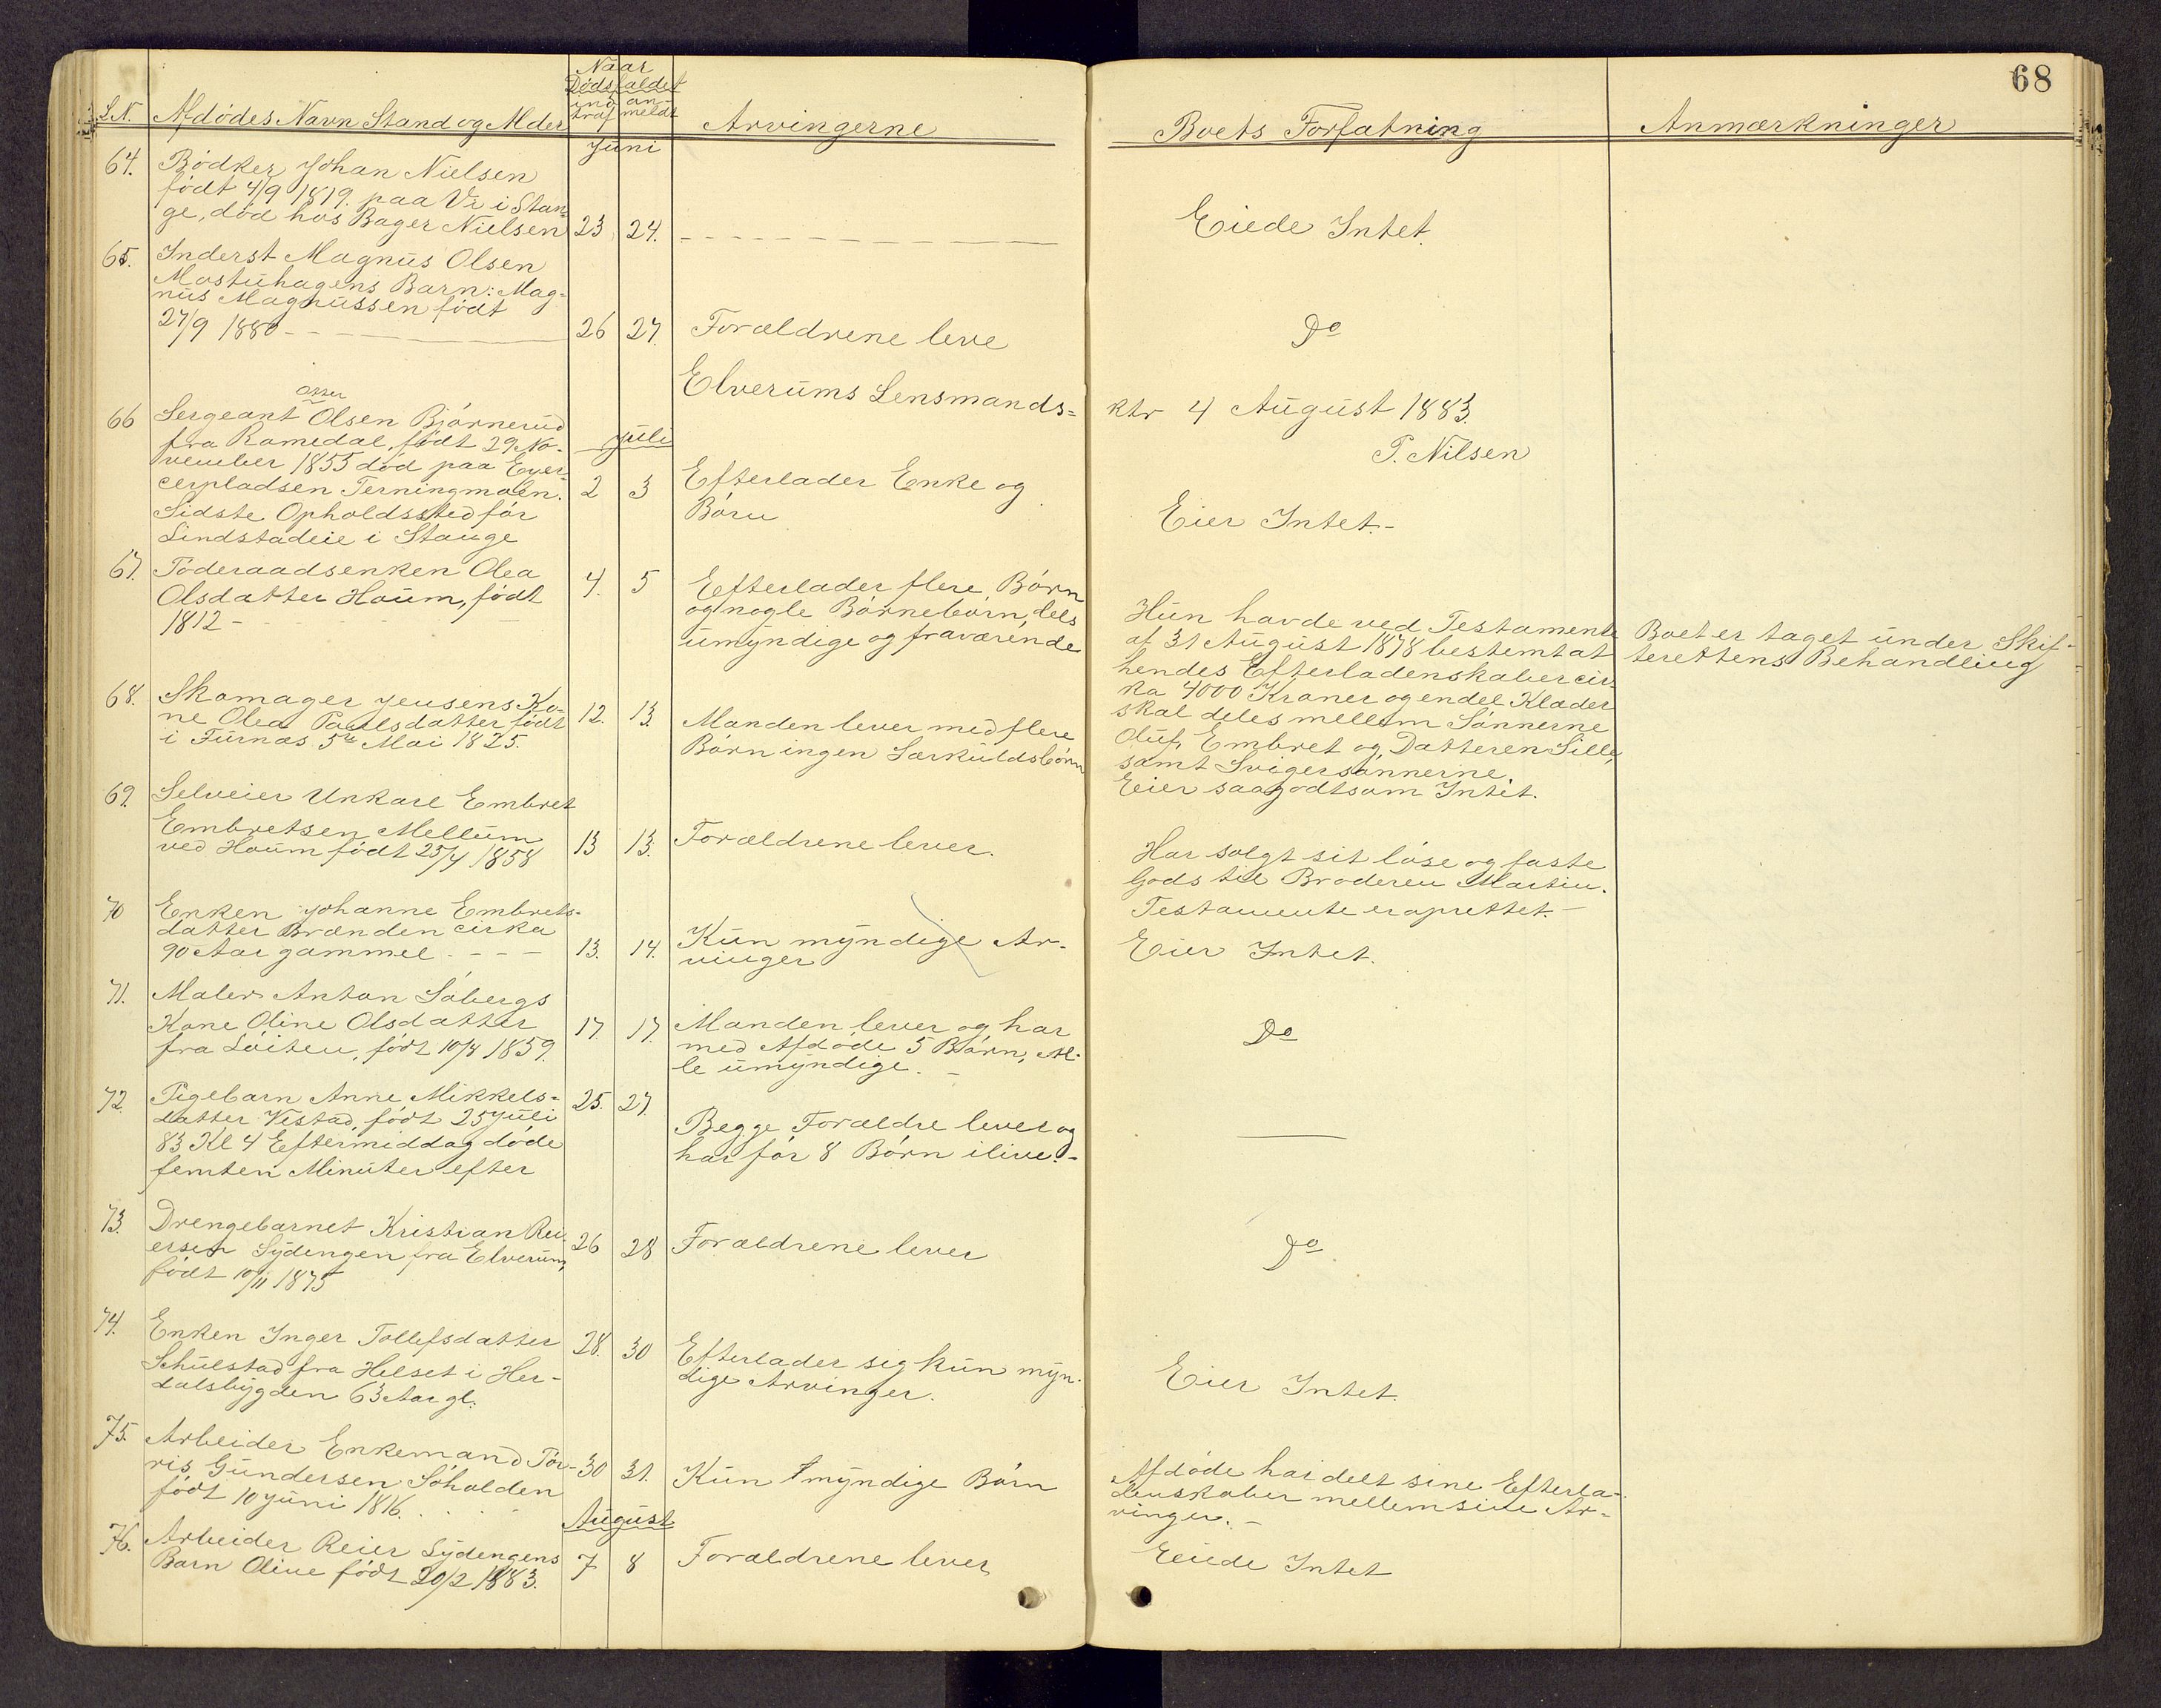 68
Naar
Dødsfaldet
L.N. Afdødes Navn Stand og Alder indtraf anmeldt Arvingerne Boets Forfatning Anmærkninger
Juni
64. Bødker Johan Nielsen
født 4/9 1819. paa Ve i Stan-
ge, død hos Bager Nielsen 23 24. Eiede Intet.
65. Inderst Magnus Olsen
Mostuhagens Barn: Mag-
nus Magnussen født
27/9 1880 26 27. Forældrene leve Do
Elverums Lensmands-
ktr 4 August 1883.
P. Nilsen
66 Sergeant Olsen Bjørnerud
fra Romedal, født 29 No-
vember 1855 død paa Exer-
cerpladsen Terningmoen.
Sidste Opholdssted før
Lindstadeie i Stange
Juli
2 3 Efterlader Enke og
Børn
Eier Intet.-
67. Føderaadsenken Olea
Olsdatter Houm, født
1812 -
4. 5 Eefterlader flere Børn
og nogle Børnebørn, dels
umyndige og fraværende
Hun havde ved Testamente
af 31 August 1878 bestemt at
hendes Efterladenskaber cir-
ka 4000 Kroner og endel Klæder
skal deles mellem Sønnerne
Oluf, Embret og Datteren Sille,
samt Svigersønnerne.
Boet er taget under Skif-
terettens Behandling
68. Skomager Jensens Ko-
ne Olea Paulsdatter født
i Furnæs 5te Mai 1825.
12. 13. Manden lever med flere
Børn ingen Særkuldsbørn
Eier saagodtsom Intet.
69. Selveier Unkarl Embret
Embretsen Mellum
ved Houm født 25/4 1858
13 13. Forældrene lever.
Har solgt sit løse og faste
Gods til Broderen Martin.
Testamente er oprettet.-
70 Enken Johanne Embrets-
datter Brænden cirka
90 Aar gammel.
13. 14. Kun myndige Ar-
vinger
Eier Intet.
71. Maler Anton Søbergs
Kone Oline Olsdatter
fra Løiten, født 10/4 1859.
17. 17. Manden lever og har
med Afdøde 5 Børn, Al-
le umyndige. -
Do
72. Pigebarn Anne Mikkels-
datter Vestad, født 25 Juli
83 Kl 4 Eftermiddag døde
femten Minuter efter
25. 27. Begge Forældre lever og
har før 8 Børn ilive.-
73. Drengebarnet Kristian Rei-
ersen Sydengen fra Elverum,
født 10/11 1875
26 28 Forældrene lever Do
74. Enken Inger Tollefsdatter
Schulstad fra Helset i Her-
dalsbygden 63 Aar gl.
28. 30 Efterlader sig kun myn-
dige Arvinger.
Eier Intet.
75. Arbeider Enkemand Tor-
ris Gundersen Søholden
født 10 Juni 1816.
30 31. Kun myndige Børn
Afdøde har delt sine Efterla-
denskaber mellem sine Ar-
vinger. -
August
76. Arbeider Reier Sydengens
Barn Oline født 20/2 1883.
7 8 Forældrene lever Eiede Intet